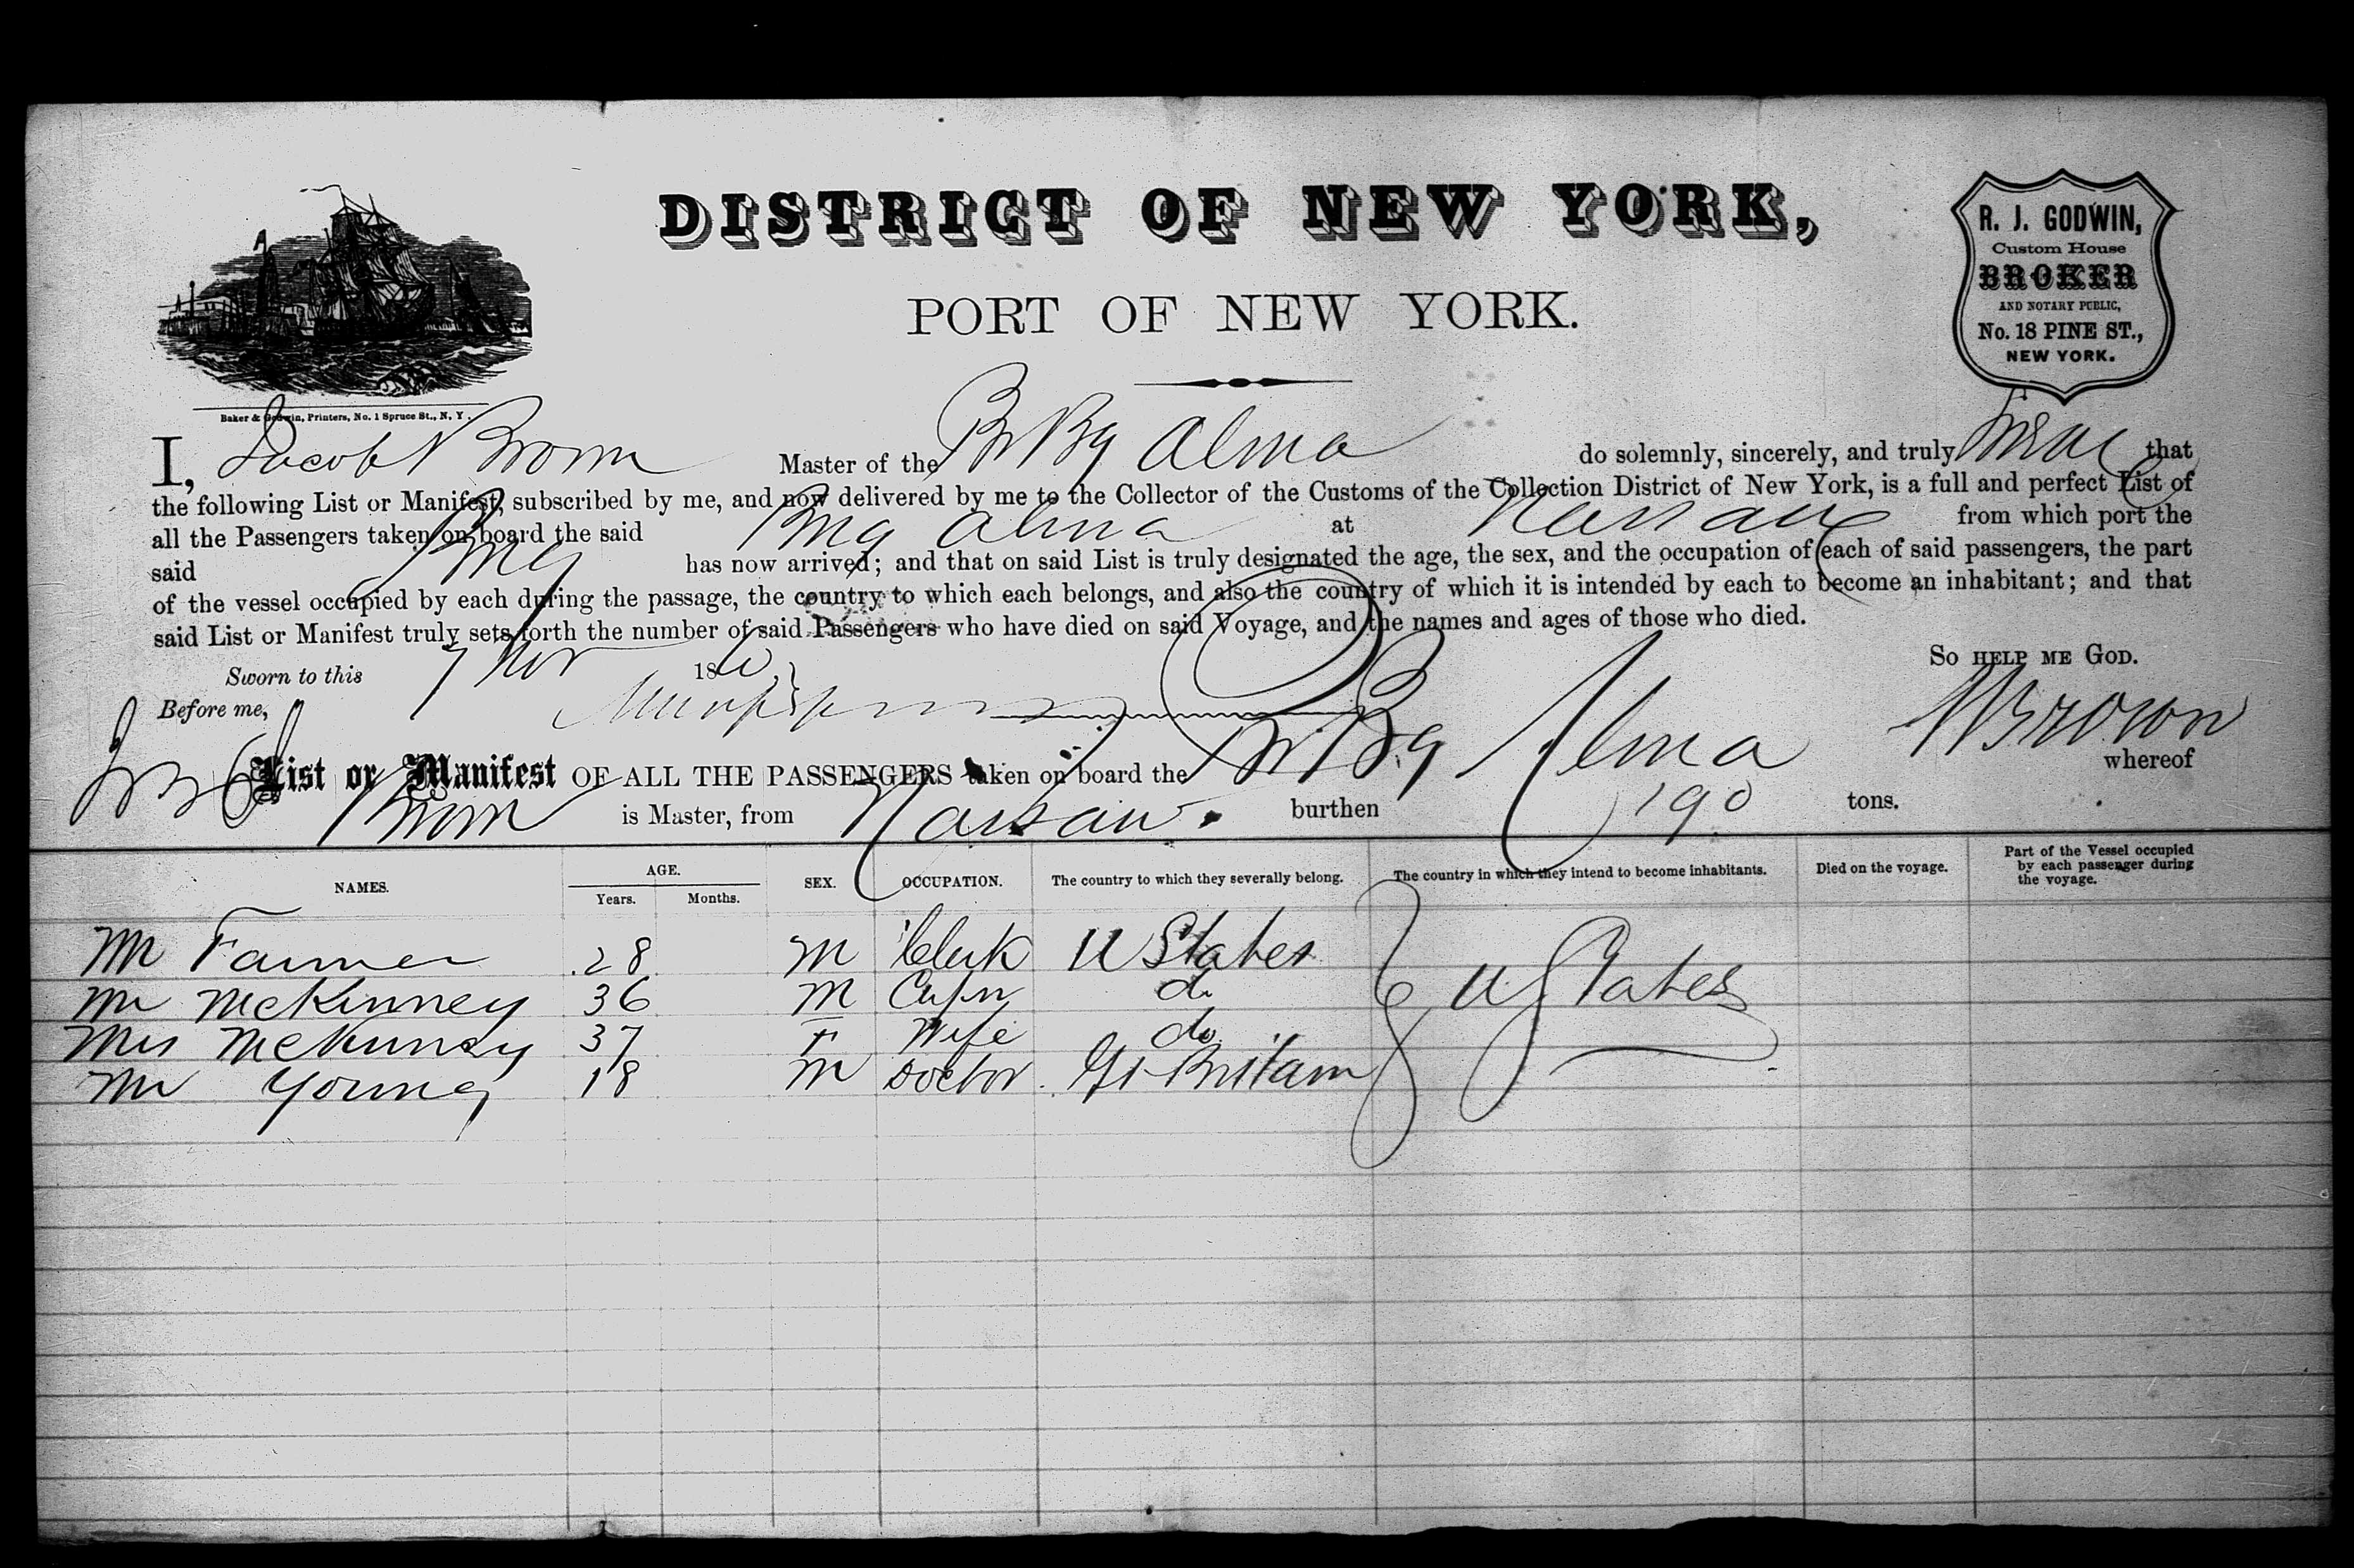 DISTRICT OF NEW YORK,
PORT OF NEW YORK.
R. J. GODWIN,
Custom House
BROKER
AND NOTARY PUBLIC,
No. 18 PINE ST.,
NEW YORK.
Baker & Godwin, Printers, No. 1 Spruce St., N. Y.
I, Jacob Brown Master of the Br Bg Alma do solemnly, sincerely, and truly swear that
the following List or Manifest, subscribed by me, and now delivered by me to the Collector of the Customs of the Collection District of New York, is a full and perfect List of
all the Passengers taken on board the said Brig Alma at Nassau from which port the
said Brig has now arrived; and that on said List is truly designated the age, the sex, and the occupation of each of said passengers, the part
of the vessel occupied by each during the passage, the country to which each belongs, and also the country of which it is intended by each to become an inhabitant; and that
said List or Manifest truly sets forth the number of said Passengers who have died on said Voyage, and the names and ages of those who died.
So HELP ME GOD.
Sworn to this 7 Nov 186
Before me, Brown
List or Manifest OF ALL THE PASSENGERS taken on board the Br Bg Alma whereof
Brown is Master, from Nassau. burthen 190 tons.
NAMES. AGE. Years. Months. SEX. OCCUPATION. The country to which they severally belong. The country in which they intend to become inhabitants. Died on the voyage. Part of the Vessel occupied by each passenger during the voyage.
Mr Farmer 28 M Clerk U States
Mr McKinney 36 M Capn do U States
Mrs McKinney 37 F Wife do
Mr Young 18 M Doctor Gt Britain